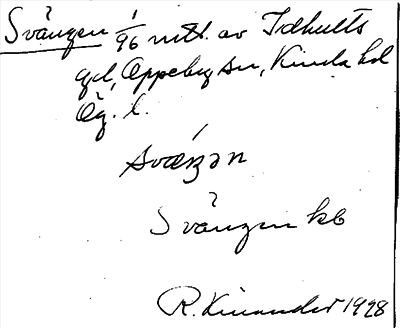 Svängen 1/96 mtl. av Idhults
gd, Oppeby sn, Kinda hd
Ög. l.
Svängen kb
R. Kinander 1928